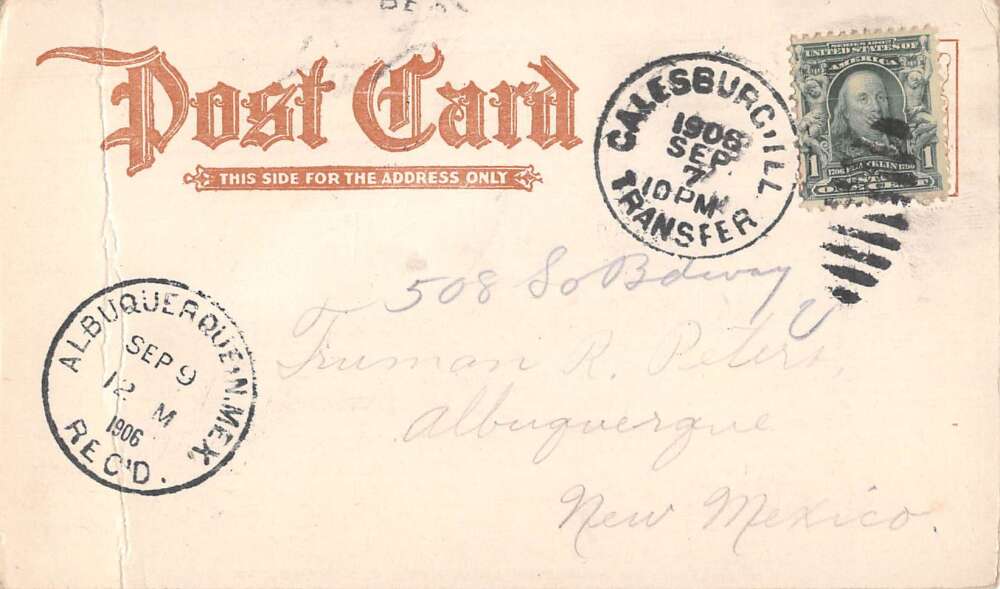 Post Card
THIS SIDE FOR THE ADDRESS ONLY
GALESBURG, ILL
1906
SEP
7
10 PM
TRANSFER
SERIES 1902
UNITED STATES OF
AMERICA
1 1
1706 FRANKLIN 1790
ONE CENT
508 So Bdway
Truman R. Peters,
Albuquerque
New Mexico.
ALBUQUERQUE, N. MEX.
SEP 9
12 M
1906
REC'D.